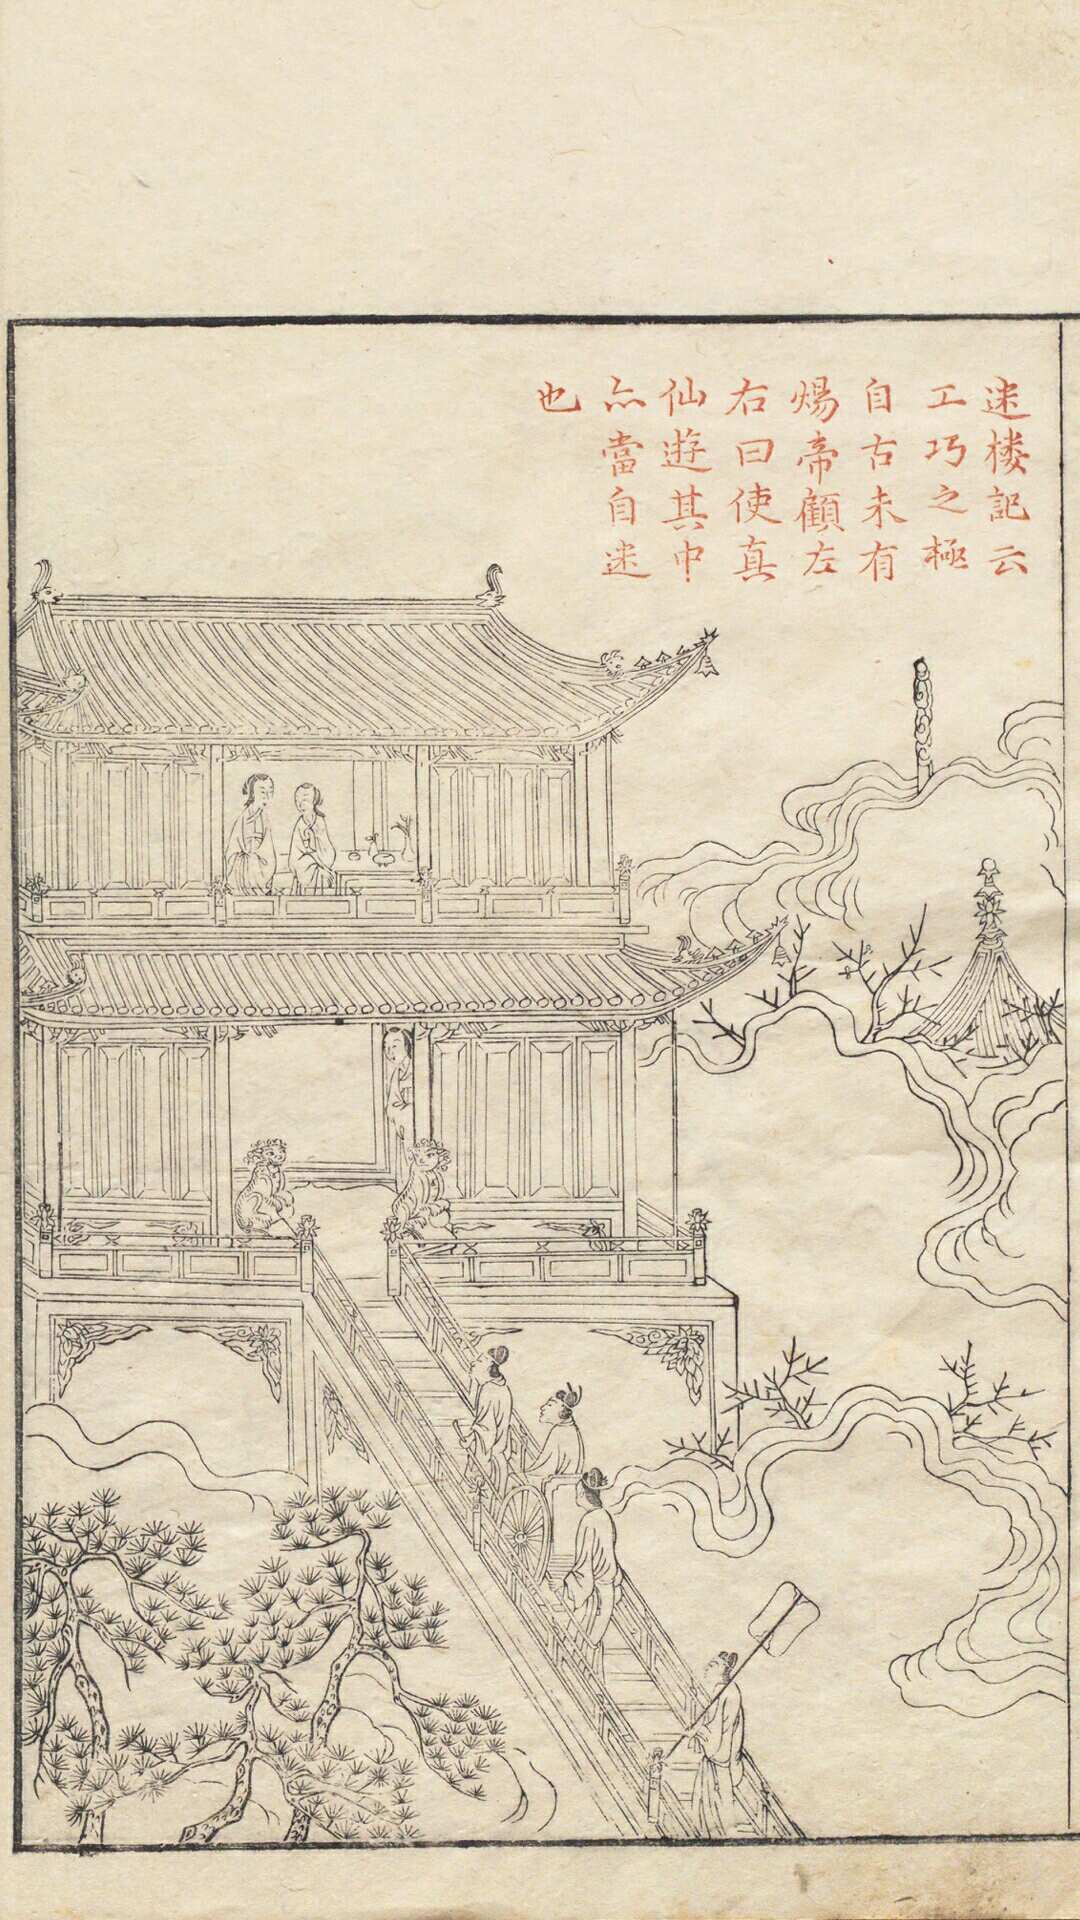 迷楼記云
工巧之極
自古未有
煬帝顧左
右曰使真
仙遊其中
亦當自迷
也